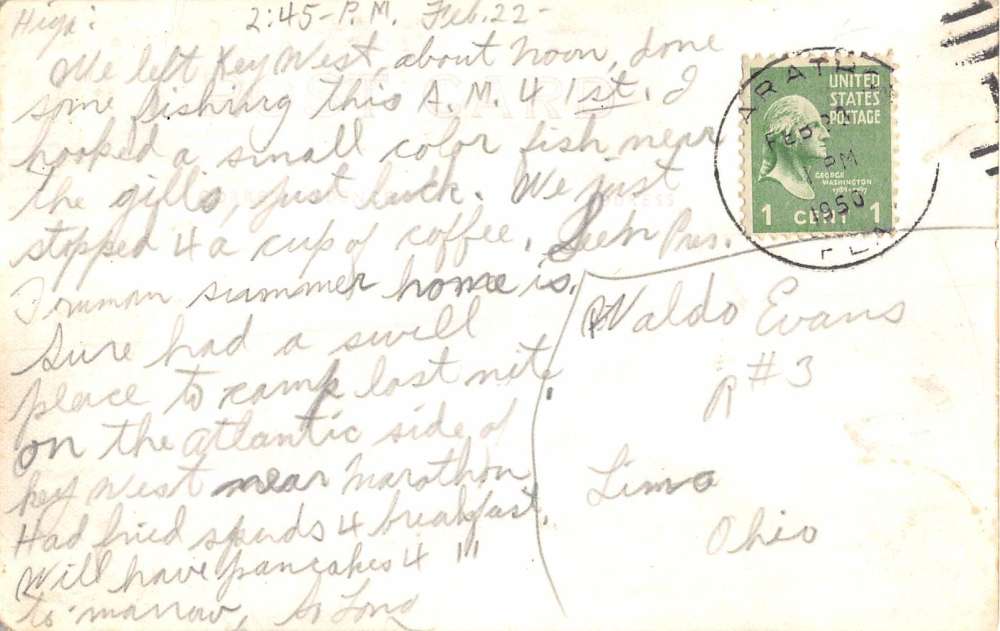 Hiya: 2:45-P.M. Feb. 22-
We left Key West, about noon, done
some fishing this A.M. 4 1st. I
hooked a small color fish near
the gills, just luck. We just
stopped 4 a cup of coffee. Seen Pres.
Truman summer home is.
Sure had a swell
place to camp last nite
on the atlantic side of
key West near Marathon
Had fried spuds 4 breakfast.
Will have pancakes 4 "
to-marrow, So Long
UNITED
STATES
POSTAGE
GEORGE
WASHINGTON
1 CENT 1
ARATH
FEB 22
PM
1950
FLA
Waldo Evans
R #3
Lima
Ohio